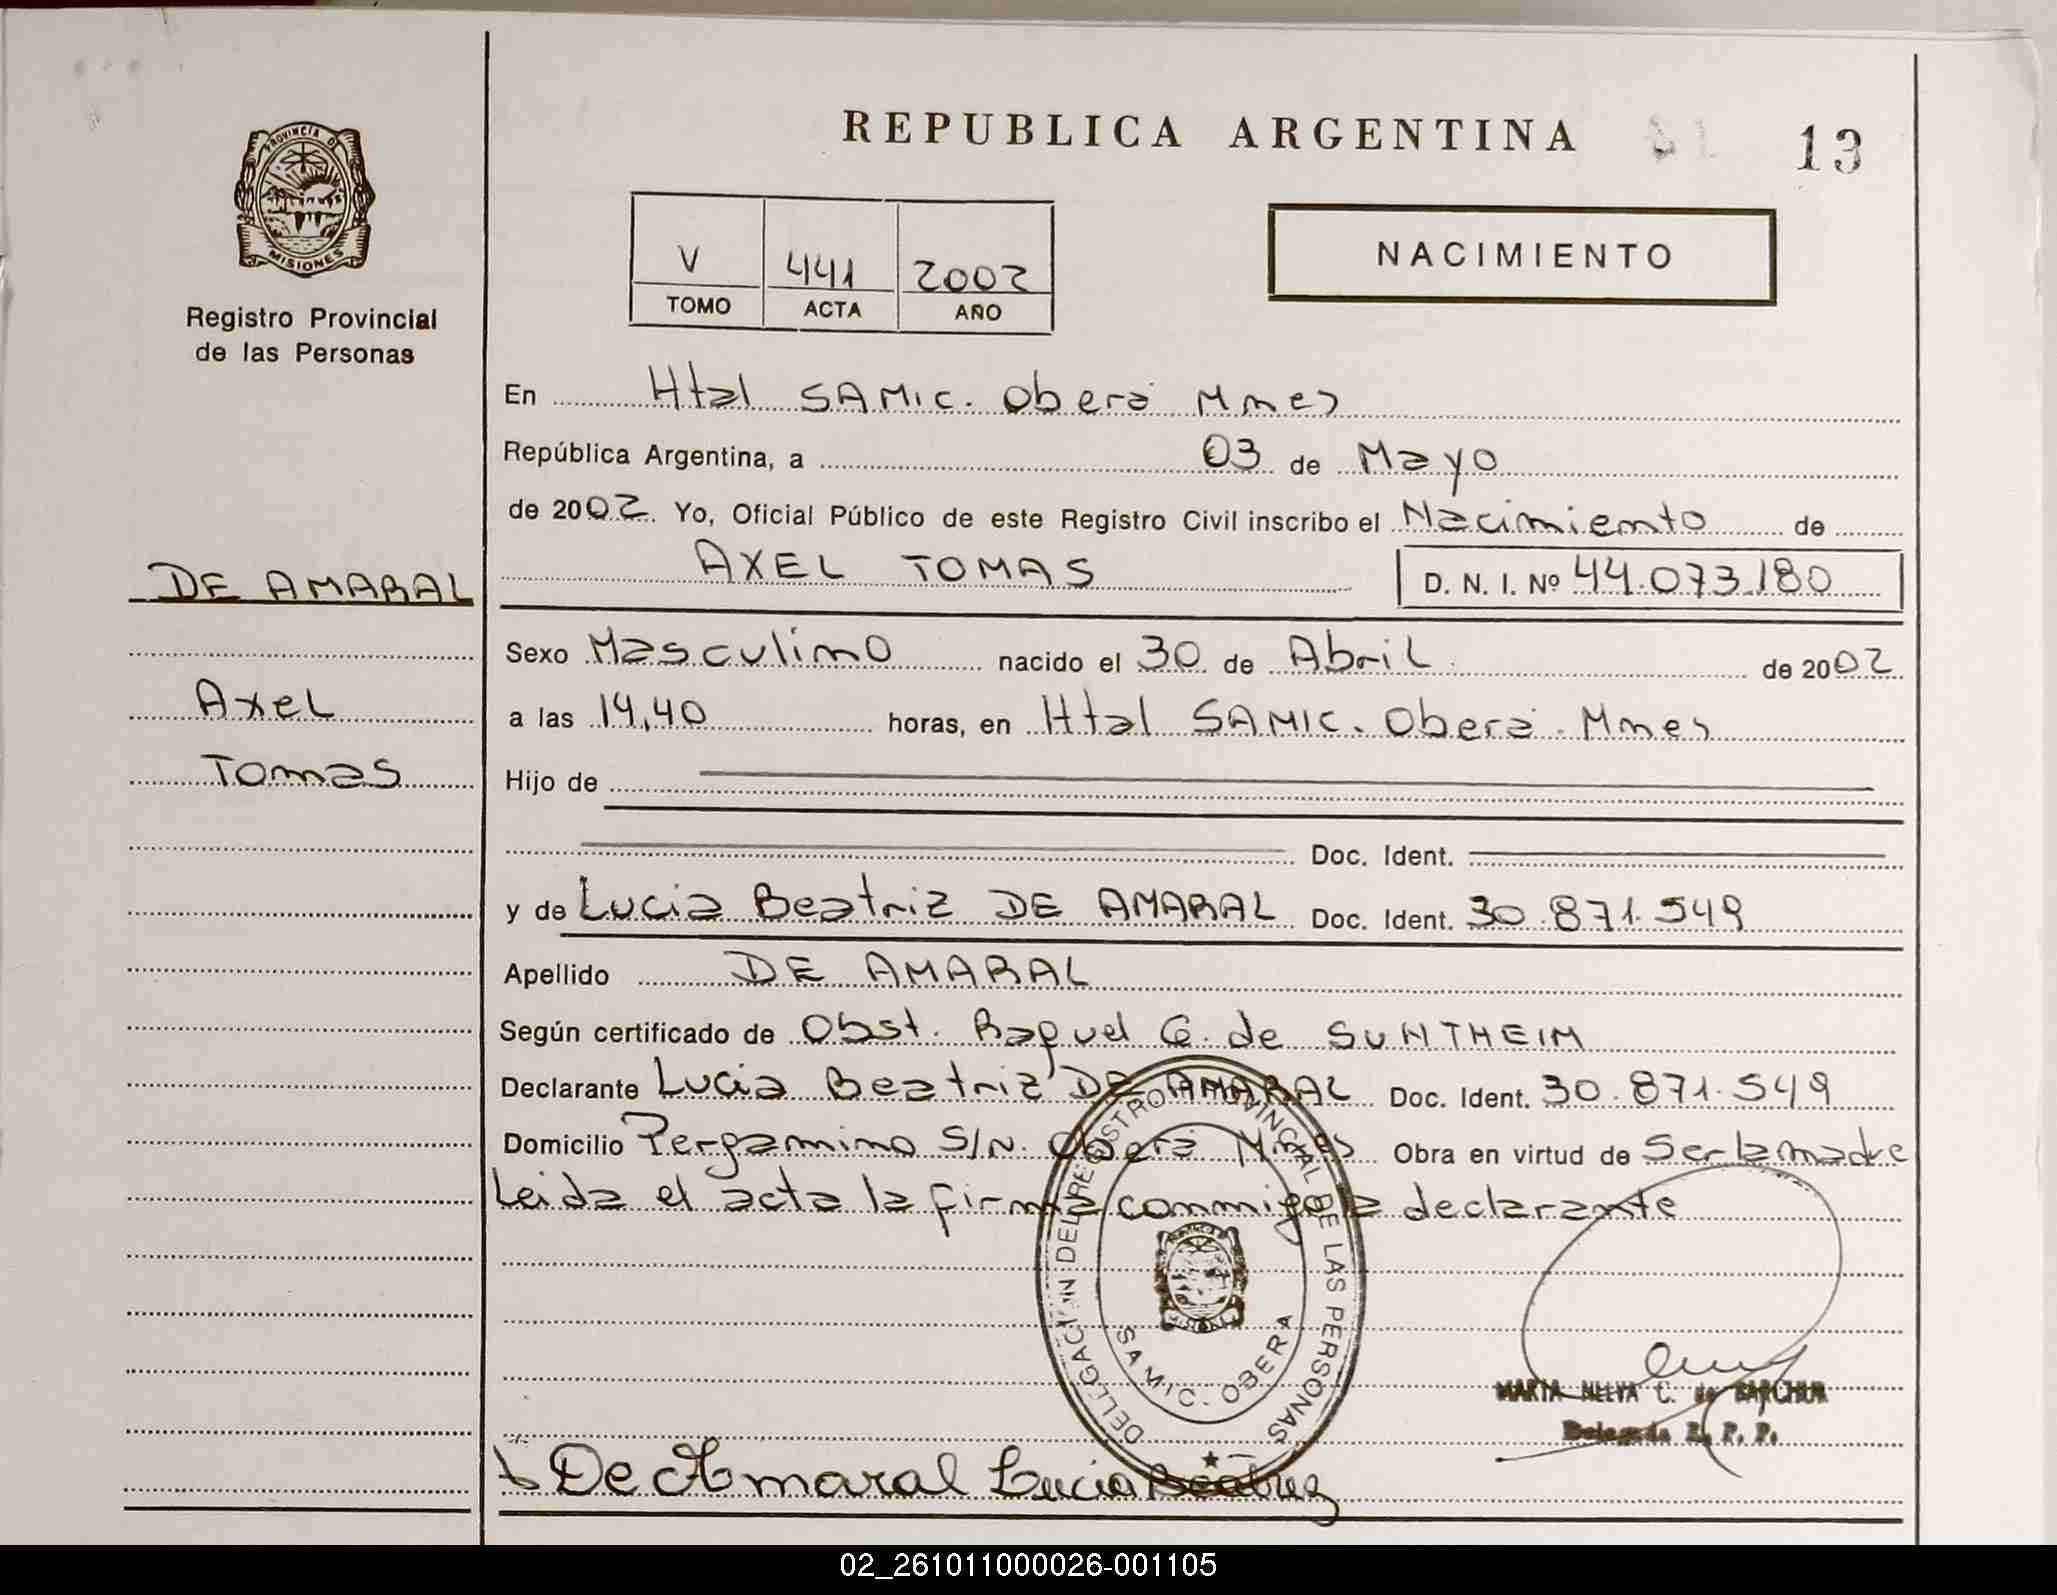 REPUBLICA ARGENTINA
13
PROVINCIA DE
MISIONES
Registro Provincial
de las Personas
V 441 2002
TOMO ACTA AÑO
NACIMIENTO
En Htal SAMIC. Oberá Mnes
República Argentina, a 03 de Mayo
de 2002. Yo, Oficial Público de este Registro Civil inscribo el Nacimiento de
AXEL TOMAS D. N. I. Nº 44.073.180
DE AMARAL
Axel
Tomas
Sexo Masculino nacido el 30 de Abril de 2002
a las 14,40 horas, en Htal SAMIC. Oberá. Mnes
Hijo de
Doc. Ident.
y de Lucia Beatriz DE AMARAL Doc. Ident. 30.871.549
Apellido DE AMARAL
Según certificado de Obst. Raquel G. de SUNTHEIM
Declarante Lucia Beatriz DE AMARAL Doc. Ident. 30.871.549
Domicilio Pergamino S/N. Oberá Mnes Obra en virtud de Ser la madre
Leida el acta la firma conmigo la declarante
DELEGACION DEL REGISTRO PROVINCIAL DE LAS PERSONAS
SAMIC. OBERA
MARIA NELVA C. de
Delegada R. P. P.
De Amaral Lucia Beatriz
02_261011000026-001105